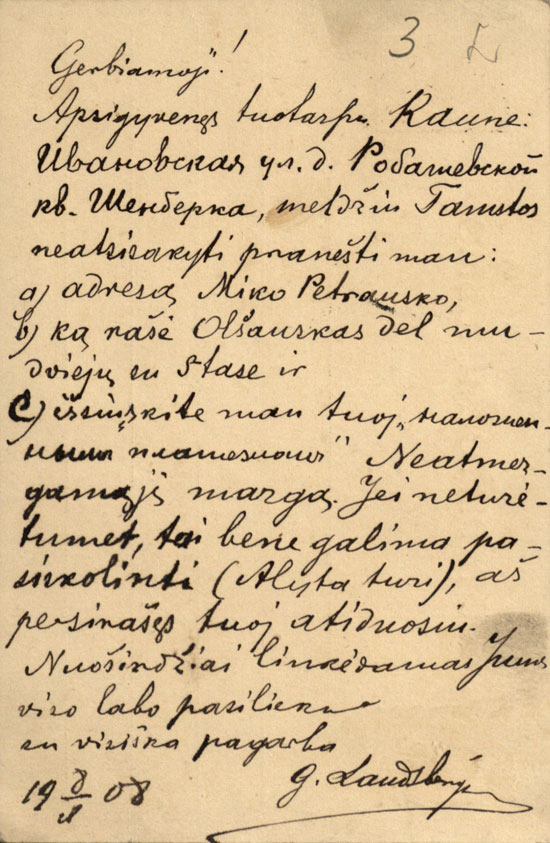 3
Gerbiamoji!
Apsigyvenęs tuotarpu Kaune:
Ивановская ул. д. Робашевской
кв. Шенберка, meldžiu Tamstos
neatsisakyti pranešti man:
a) adresą Miko Petrausko,
b) ką rašė Olšauskas dėl mu-
dviejų su Stase ir
c) išsiųskite man tuoj „наложен-
ным платежомъ" Neatmez-
gamąjį mazgą. Jei neturė-
tumet, tai bene galima pa-
siskolinti (Alyta turi), aš
persirašęs tuoj atiduosiu.
Nuoširdžiai linkėdamas Jums
viso labo pasilieku
su visiška pagarba
19 8/II 08 G. Landsbergis